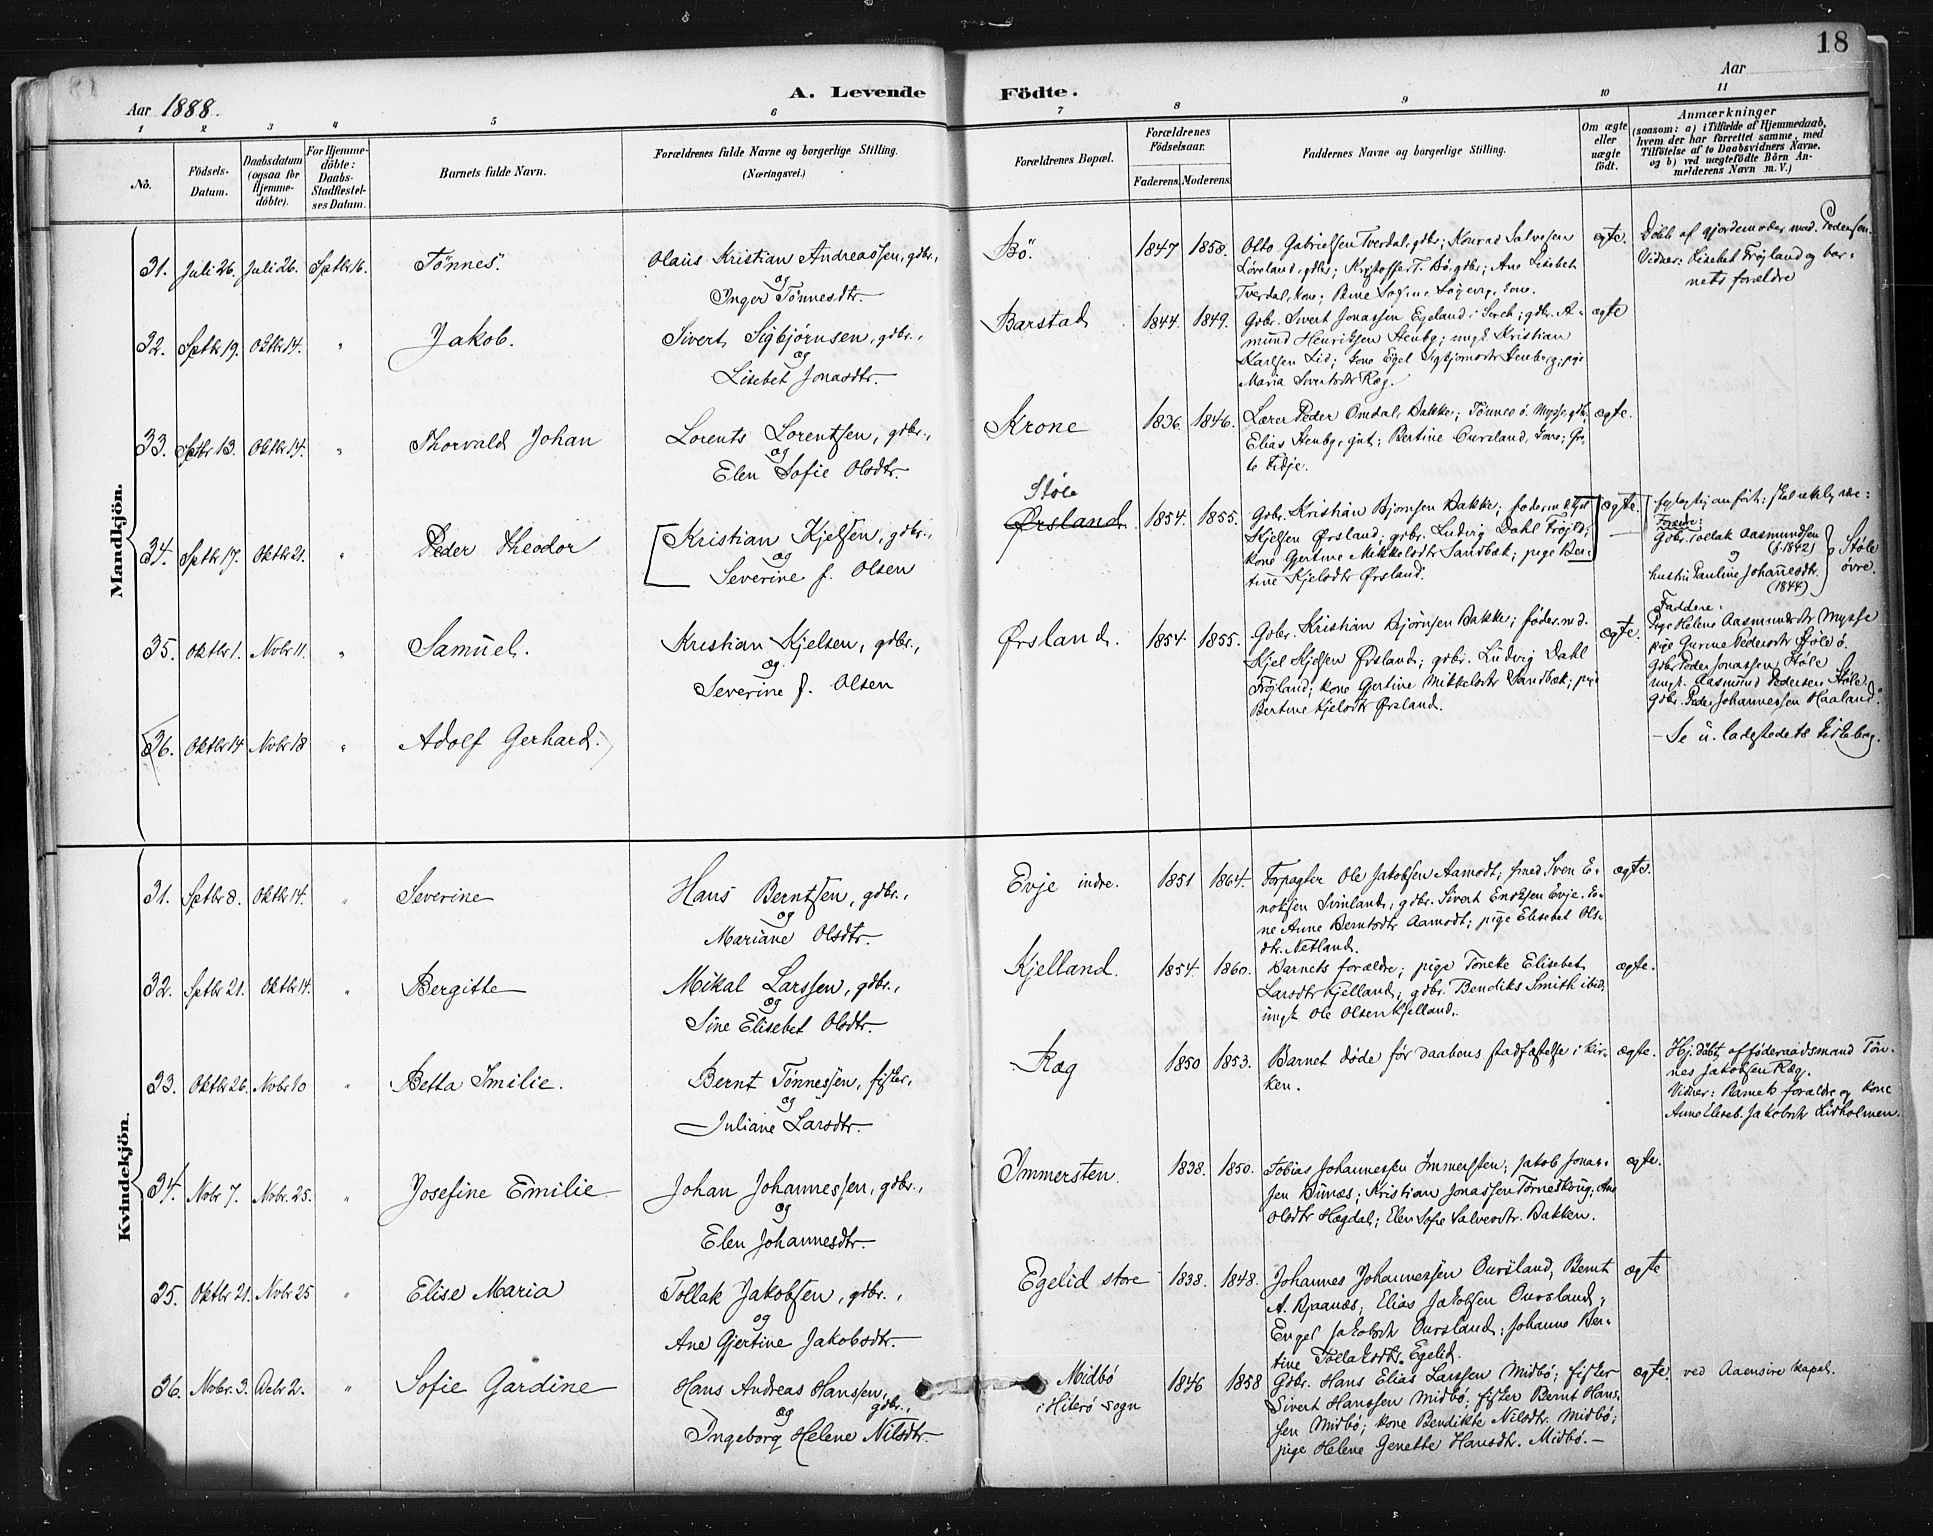 18
Aar 1888.
A. Levende Födte.
Aar
1 2 3 4 5 6 7 8 9 10 11
No.
Födsels-Datum.
Daabsdatum (ogsaa for Hjemmedöbte).
For Hjemmedöbte: Daabs-Stadfæstelses Datum.
Barnets fulde Navn.
Forældrenes fulde Navne og borgerlige Stilling. (Næringsvei.)
Forældrenes Bopæl.
Forældrenes Födselsaar.
Faderens. Moderens.
Faddernes Navne og borgerlige Stilling.
Om ægte eller uægte födt.
Anmærkninger
(saasom: a) i Tilfælde af Hjemmedaab, hvem der har forrettet samme, med Tilföielse af to Daabsvidners Navne. og b) ved uægtefödte Börn Anmelderens Navn m. V.)
Mandkjön.
31. Juli 26. Juli 26. Sptbr 16. Tönnes. Olaus Kristian Andreassen, gdbr.,
og
Inger Tönnesdtr.
Bö. 1847 1858.
Otto Gabrielsen Tverdal, gdbr; Konrad Salvesen
Löveland, gdbr; Kristoffer T. Bö, gdbr; Ane Lisebet
Tverdal, kone;
ægte.
Döbt af gjordemoder mad. Pedersen.
Vidner: Lisebet Fröyland og bar-
nets forældre
32. Sptbr 19. Oktbr 14. " Jakob. Sivert Sigbjörnsen, gdbr.,
og
Lisebet Jonasdtr.
Barstad 1844. 1849.
Gdbr. Sivert Jonassen Egeland i Sireh; gdbr. A-
mund Henriksen Stenbg; ungk. Kristian
Karlsen Lid; kone Egel Sigbjörnsdtr Stenberg; pige
Maria Sivertsdtr Ræg.
ægte
33. Sptbr 13. Oktbr 14. " Thorvald Johan Lorents Lorentsen, gdbr.,
og
Elen Sofie Olsdtr.
Krone 1836. 1846.
Lærer Peder Omdal, Bakke; Tönnes ö. Mysse, gdb;
Elias Stenbg, gut; Bertine Oursland, kone; Gro-
to Fidje.
ægte.
34. Sptbr 17. Oktbr 21. " Peder Theodor Kristian Kjelsen, gdbr.,
og
Severine f. Olsen
Stöle
Ørsland. 1854. 1855.
Gdbr. Kristian Bjornsen Bakke; föderm. Kjel
Kjelsen Ørsland; gdbr. Ludvig Dahl Fröjld;
kone Gertine Mikkelsdtr Sandbæk; pige Ber-
tine Kjelsdtr Ørsland.
ægte.
feilagtig anfört; skal rettelig være:
Gdbr. Tollak Aasmundsen
(f. 1842)
og
hustru Pauline Johannesdtr.
(1844)
Stöle övre.
35. Oktbr 1. Nvbr 11. " Samuel. Kristian Kjelsen, gdbr.,
og
Severine f. Olsen
Ørsland. 1854. 1855.
Gdbr. Kristian Björnsen Bakke; föder.md.
Kjel Kjelsen Ørsland; gdbr. Ludvig Dahl
Fröjland; kone Gertine Mikkelsdtr Sandbæk; pige
Bertine Kjelsdtr Ørsland.
ægte.
Faddere.
Pige Helene Aasmundsdtr Mysse
pige Gurine Pedersdtr Stöle ö.
Gdbr Peder Jonassen Stöle
ungk. Aasmund Pedersen Stöle
gdbr. Peder Johannessen Haaland.
36. Oktbr 14 Nvbr 18 " Adolf Gerhard.
— Se u. ladestedets kirkebog.
Kvindekjön.
31. Sptbr 8. Oktbr 14. " Severine Hans Berntsen, gdbr.,
og
Mariane Olsdtr.
Evje indre. 1851 1864.
Forpagter Ole Jakobsen Aamodt; smed Sven E-
noksen Svinland; gdbr. Sivert Enoksen Evje. Ko-
ne Anne Berntsdtr Aamodt; pige Elisebet Ols-
dtr. Netland.
ægte.
32. Sptbr 21. Oktbr 14. " Bergitte Mikal Larssen, gdbr.,
og
Sine Elisebet Olsdtr.
Kjelland. 1854. 1860.
Barnets forældre; pige Töneke Elisebet
Larsdtr Kjelland; gdbr. Bendiks Smith ibid;
ungk. Ole Olsen Kjelland.
ægte.
33. Oktbr 26. Nvbr 10 " Betta Imilie. Bernt Tönnessen, fisker,
og
Juliane Larsdtr.
Ræg 1850 1853.
Barnet döde för daabens stadfæstelse i kir-
ken.
ægte.
Hj. döbt af föderaadsmand Tön-
nes Jakobsen Ræg.
Vidner: Barnets forældre og kone
Anne Eliseb. Jakobsdtr Lidholmen.
34. Nvbr 7. Nvbr. 25. " Josefine Emilie Johan Johannessen, gdbr.,
og
Elen Johannesdtr.
Immersten. 1838. 1850.
Tobias Johannessen Immersten; Jakob Jonas-
sen Bunæs; Kristian Jonassen Törneskog; Ane
Olsdtr Hægdal; Elen Sofie Salvesdtr. Bakken.
ægte.
35. Oktbr 21. Nvbr 25 " Elise Maria Tollak Jakobsen, gdbr.,
og
Ane Gjertine Jakobsdtr.
Egelid store 1838. 1848.
Johannes Johannessen Oursland; Bernt
A. Bjaanæs; Elias Jakobsen Oursland;
Engel Jakobsdtr Oursland; Johanne Ber-
tine Tollaksdtr. Egelid.
ægte
36. Nvbr. 3. Debr 2. " Sofie Gardine Hans Andreas Hanssen, gdbr.,
og
Ingeborg Helene Nilsdtr.
Midbö
i Hiterö sogn 1846 1858
Gdbr. Hans Elias Larssen Midbö; fisker
Sivert Hanssen Midbö; fisker Bernt Hans-
sen Midbö; kone Bendikte Nilsdtr. Midbö;
pige Helene Genette Hansdtr. Midbö. —
ægte. ved Aaensire kapel.